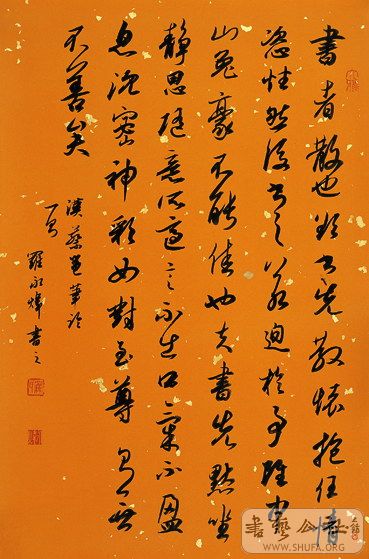 書者散也欲書先散懷抱任情
恣性然後書之若迫於事雖中
山兔豪不能佳也夫書先默坐
靜思隨意所適言不出口氣不盈
息沉密神彩如對至尊則無
不善矣
漢蔡邕筆论
羅永書之
書藝公社
WWW.SHUFA.ORG